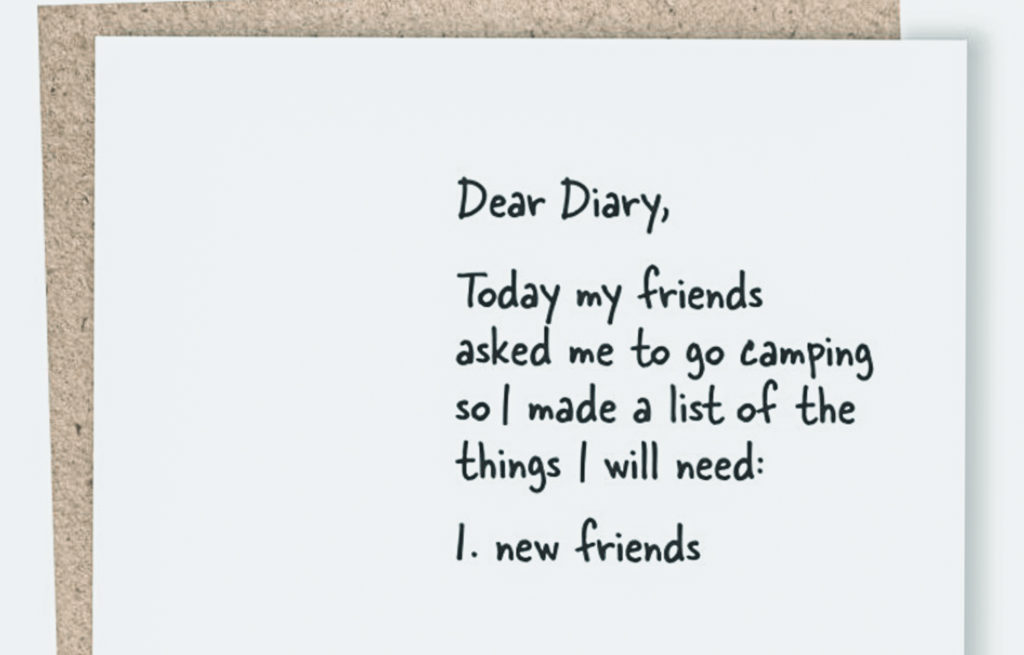 Dear Diary,
Today my friends
asked me to go camping
so I made a list of the
things I will need:
1. new friends